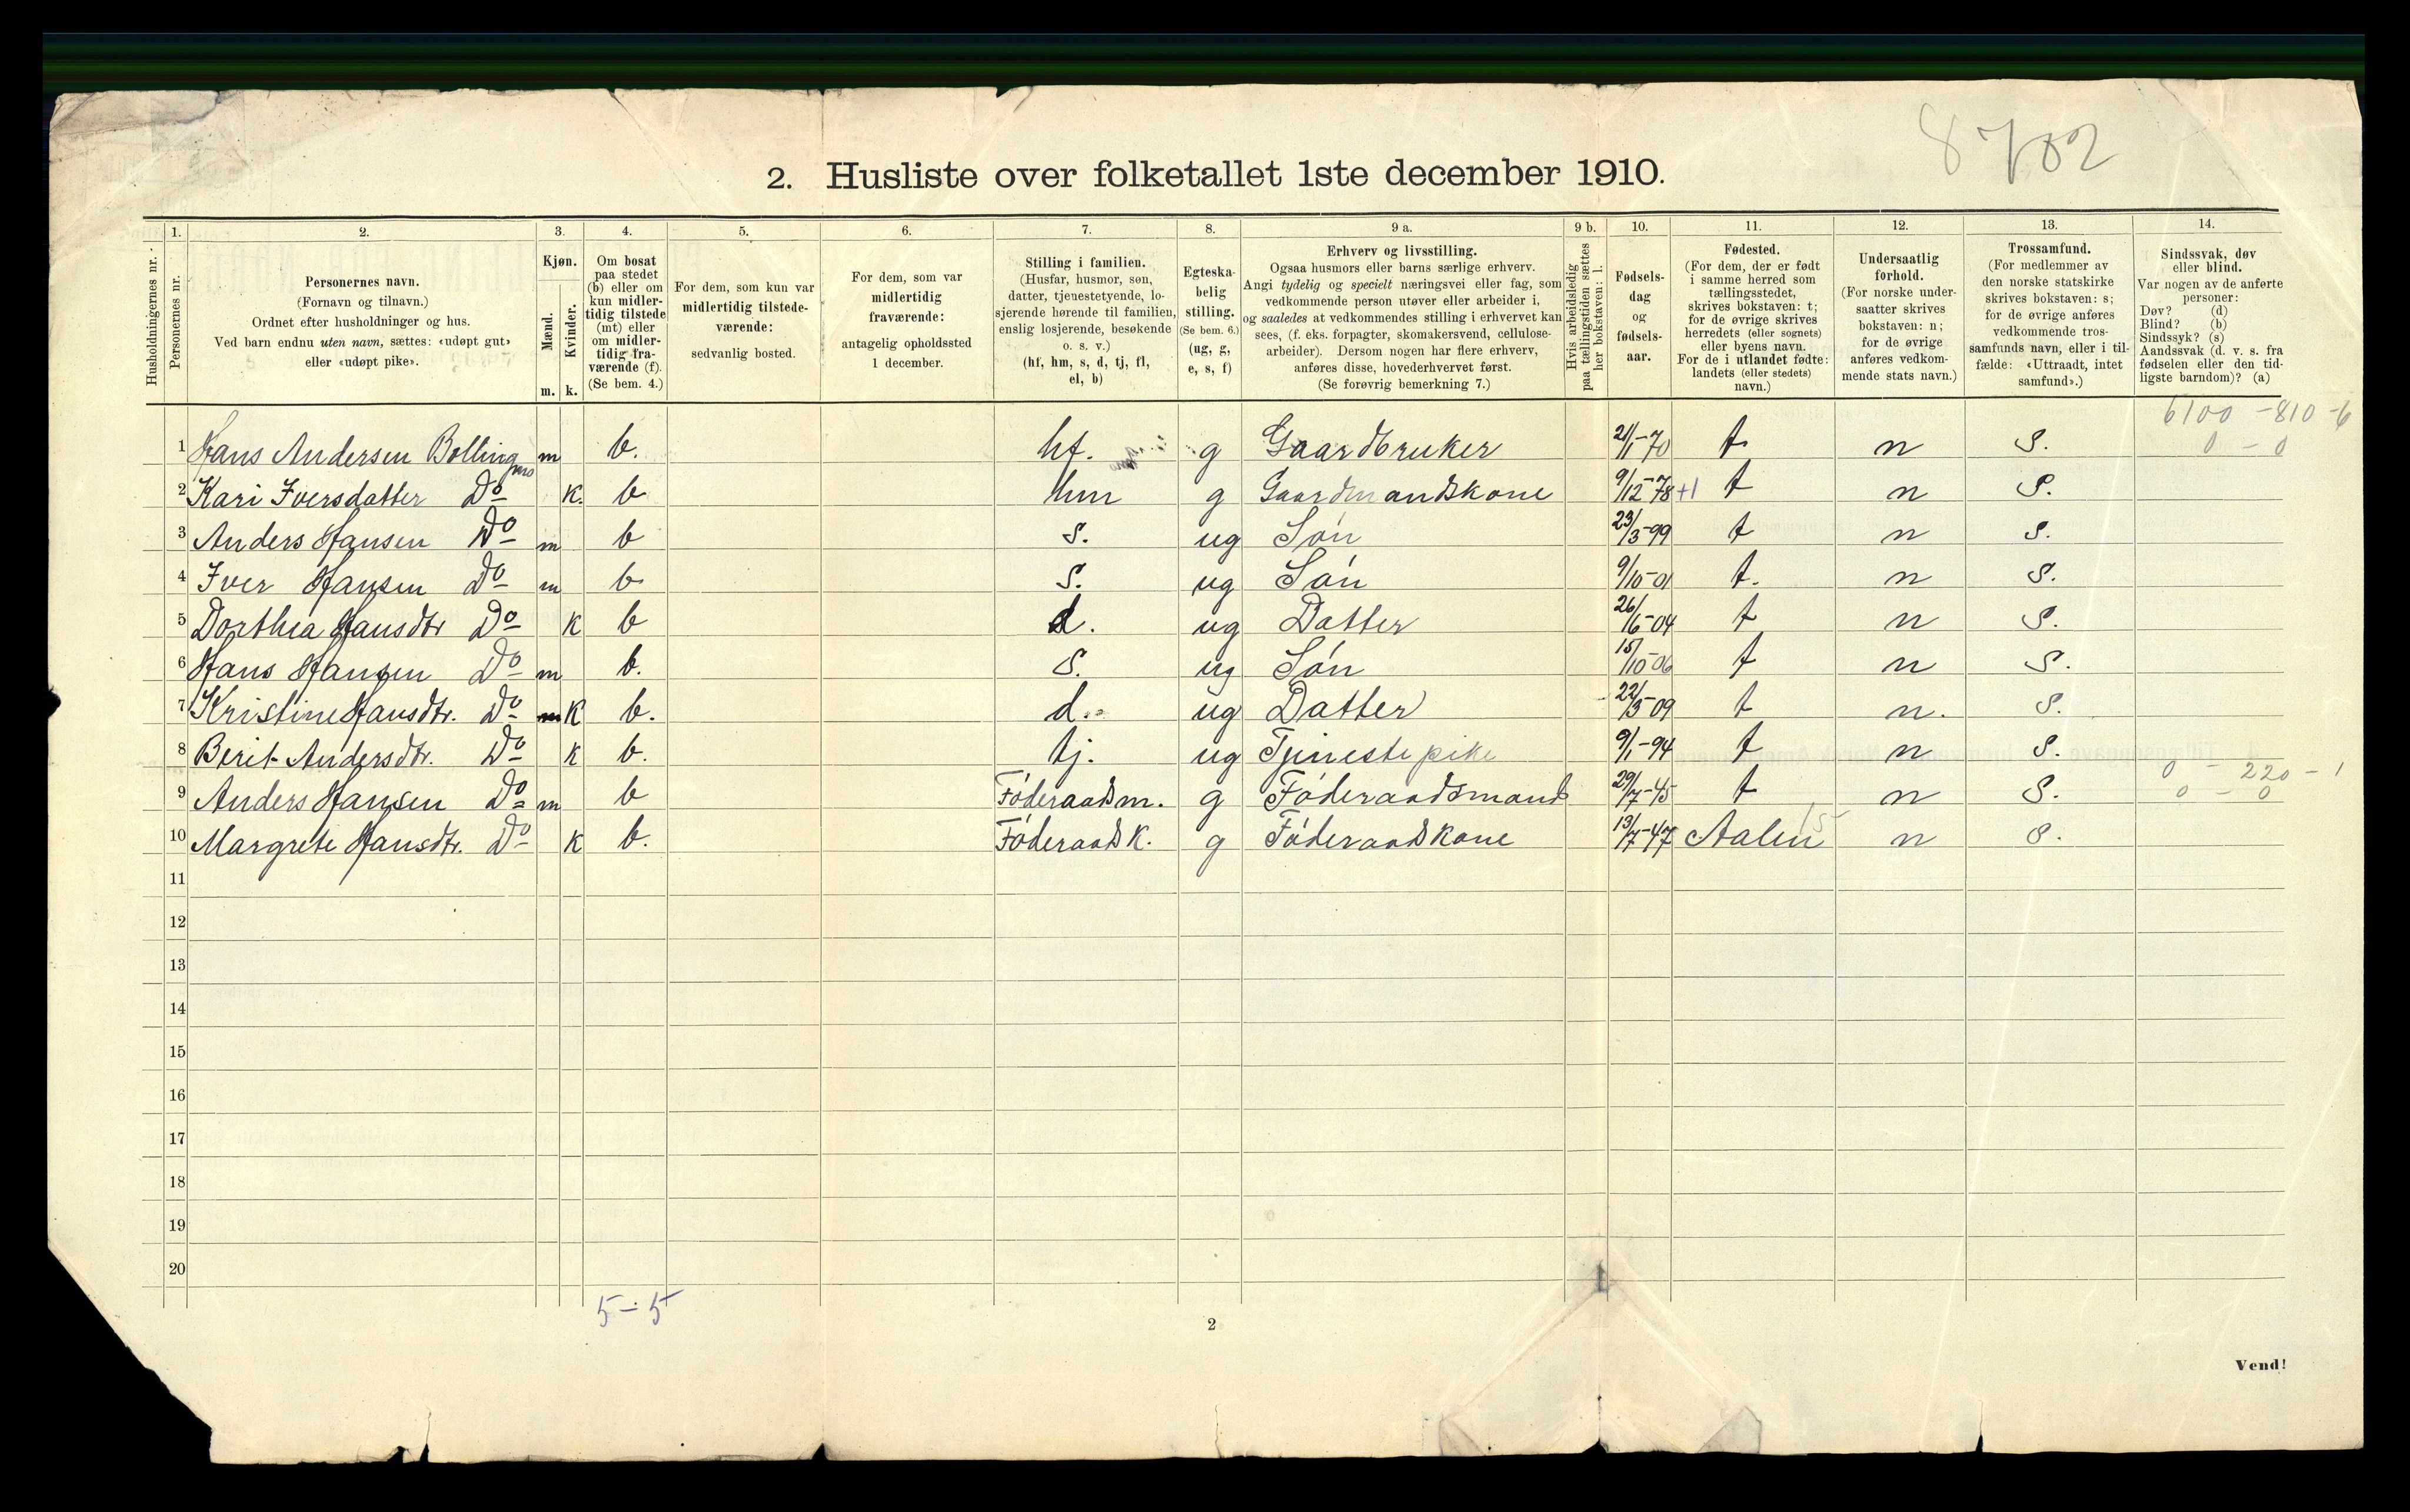 8702
2. Husliste over folketallet 1ste december 1910.
Husholdningernes nr.
1. Personernes nr.
2. Personernes navn.
(Fornavn og tilnavn.)
Ordnet efter husholdninger og hus.
Ved barn endnu uten navn, sættes: «udøpt gut»
eller «udøpt pike».
3. Kjøn.
Mænd. m.
Kvinder. k.
4. Om bosat
paa stedet
(b) eller om
kun midler-
tidig tilstede
(mt) eller
om midler-
tidig fra-
værende (f).
(Se bem. 4.)
5. For dem, som kun var
midlertidig tilstede-
værende:
sedvanlig bosted.
6. For dem, som var
midlertidig
fraværende:
antagelig opholdssted
1 december.
7. Stilling i familien.
(Husfar, husmor, søn,
datter, tjenestetyende, lo-
sjerende hørende til familien,
enslig losjerende, besøkende
o. s. v.)
(hf, hm, s, d, tj, fl,
el, b)
8. Egteska-
belig
stilling.
(Se bem. 6.)
(ug, g,
e, s, f)
9 a. Erhverv og livsstilling.
Ogsaa husmors eller barns særlige erhverv.
Angi tydelig og specielt næringsvei eller fag, som
vedkommende person utøver eller arbeider i,
og saaledes at vedkommendes stilling i erhvervet kan
sees, (f. eks. forpagter, skomakersvend, cellulose-
arbeider). Dersom nogen har flere erhverv,
anføres disse, hovederhvervet først.
(Se forøvrig bemerkning 7.)
9 b. Hvis arbeidsledig
paa tællingstiden sættes
her bokstaven: l.
10. Fødsels-
dag
og
fødsels-
aar.
11. Fødested.
(For dem, der er født
i samme herred som
tællingsstedet,
skrives bokstaven: t;
for de øvrige skrives
herredets (eller sognets)
eller byens navn.
For de i utlandet fødte:
landets (eller stedets)
navn.)
12. Undersaatlig
forhold.
(For norske under-
saatter skrives
bokstaven: n;
for de øvrige
anføres vedkom-
mende stats navn.)
13. Trossamfund.
(For medlemmer av
den norske statskirke
skrives bokstaven: s;
for de øvrige anføres
vedkommende tros-
samfunds navn, eller i til-
fælde: «Uttraadt, intet
samfund».)
14. Sindssvak, døv
eller blind.
Var nogen av de anførte
personer:
Døv? (d)
Blind? (b)
Sindssyk? (s)
Aandssvak (d. v. s. fra
fødselen eller den tid-
ligste barndom)? (a)
6100 - 810 - 6
1 Hans Andersen Bollingmo m b. hf. g Gaardbruker 21/1-70 t. n S. 0 - 0
2 Kari Iversdatter Do k. b hm g Gaardmandskone 9/12-78 +1 t n S.
3 Anders Hansen Do m b S. ug Søn 23/3-99 t n S.
4 Iver Hansen Do m b S. ug Søn 9/10-01 t. n S.
5 Dorthea Hansdtr Do k b d. ug Datter 26/6-04 t n S.
6 Hans Hansen Do m b. S. ug Søn 15/10-06 t n S.
7 Kristine Hansdtr. Do m K b. d. ug Datter 22/5-09 t n. S.
8 Berit Andersdtr. Do k b. tj. ug Tjenestepike 9/1-94 t n S.
0 - 220 - 1
9 Anders Hansen Do m b Føderaadsm. g Føderaadsmand 29/7-45 t n S. 0 - 0
10 Margrete Hansdtr. Do k b. Føderaadsk. g Føderaadskone 13/7-47 Aalen 15 n S.
11
12
13
14
15
16
17
18
19
20
5-5
2
Vend!